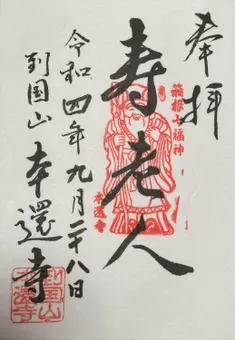 奉拝
箱根七福神
寿老人
本還寺
令和四年九月二十八日
到国山 本還寺
到国山
本還寺